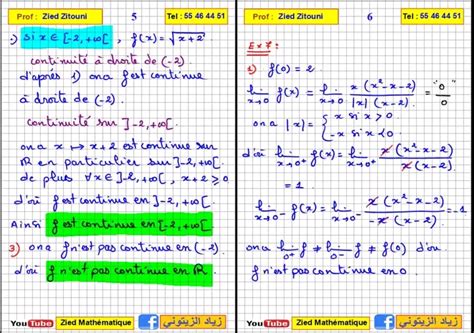 Prof : Zied Zitouni
5
Tel : 55 46 44 51
.) Si x ∈ [-2, +∞[ , f(x) = √x+2
continuité à droite de (-2)
d'après 1) on a f est continue
à droite de (-2).
continuité sur ]-2, +∞[.
on a x ↦ x+2 est continue sur
ℝ en particulier sur ]-2, +∞[.
de plus ∀x ∈ ]-2, +∞[, x+2 ≥ 0
d'où f est continue en ]-2, +∞[
Ainsi f est continue en [-2, +∞[.
3) on a f n'est pas continue en (-2).
d'où f n'est pas continue en ℝ.
YouTube
Zied Mathématique
زياد الزيتوني
Prof : Zied Zitouni
6
Tel : 55 46 44 51
Ex 7 :
1) f(0) = 2
lim x→0 f(x) = lim x→0 x(x²-x-2) / |x|(x-2) = "0/0"
on a |x| = { x si x > 0
-x si x < 0
d'où lim x→0⁺ f(x) = lim x→0⁺ x(x²-x-2) / x(x-2)
= 1
lim x→0⁻ f(x) = lim x→0⁻ x(x²-x-2) / -x(x-2) = -1
on a lim 0⁺ f ≠ lim 0⁻ f ≠ f(0) d'où
f n'est pas continue en 0.
YouTube
Zied Mathématique
زياد الزيتوني